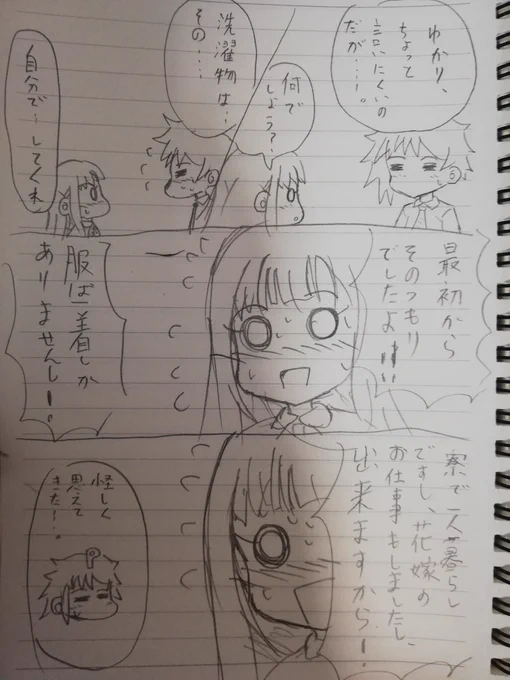 ゆかり、
ちょっと
言いにくいの
だが…。
何で
しょう?
洗濯物は…
その…
自分で…してくれ
最初から
そのつもり
でしたよ!!
服は一着しか
ありませんし…。
寮で一人暮らし
ですし、花嫁の
お仕事もしましたし、
出来ますから!
怪しく
思えて
きた…。